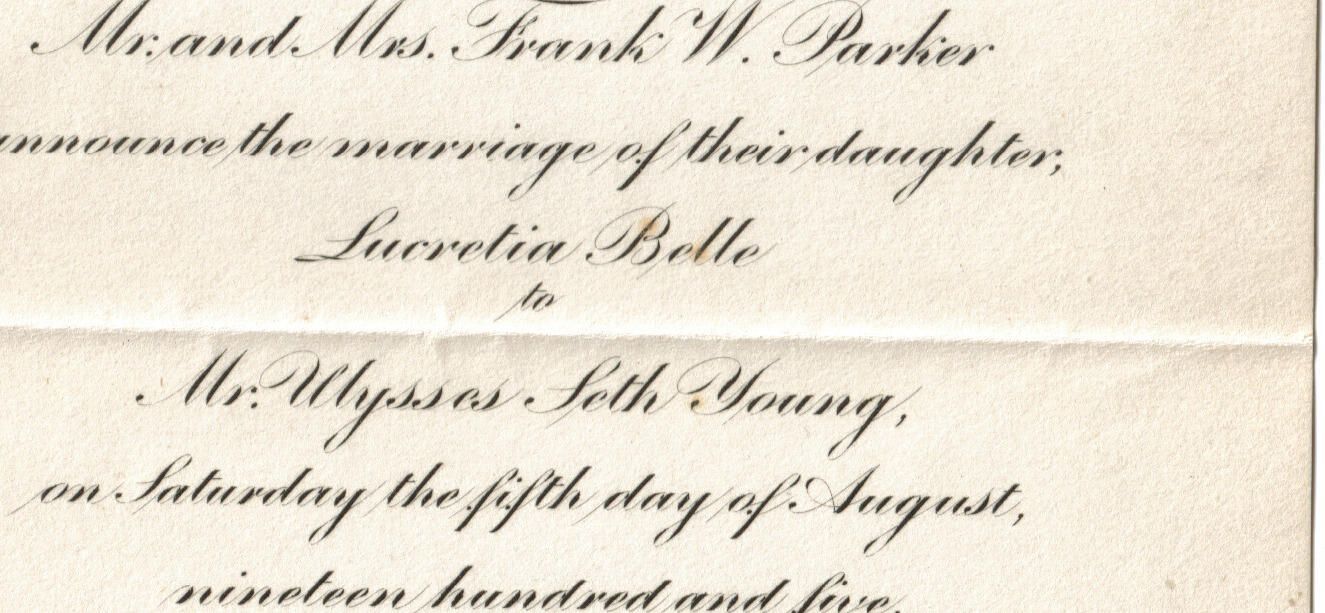 Mr. and Mrs. Frank W. Parker
announce the marriage of their daughter,
Lucretia Belle
to
Mr. Ulysses Seth Young,
on Saturday the fifth day of August,
nineteen hundred and five.